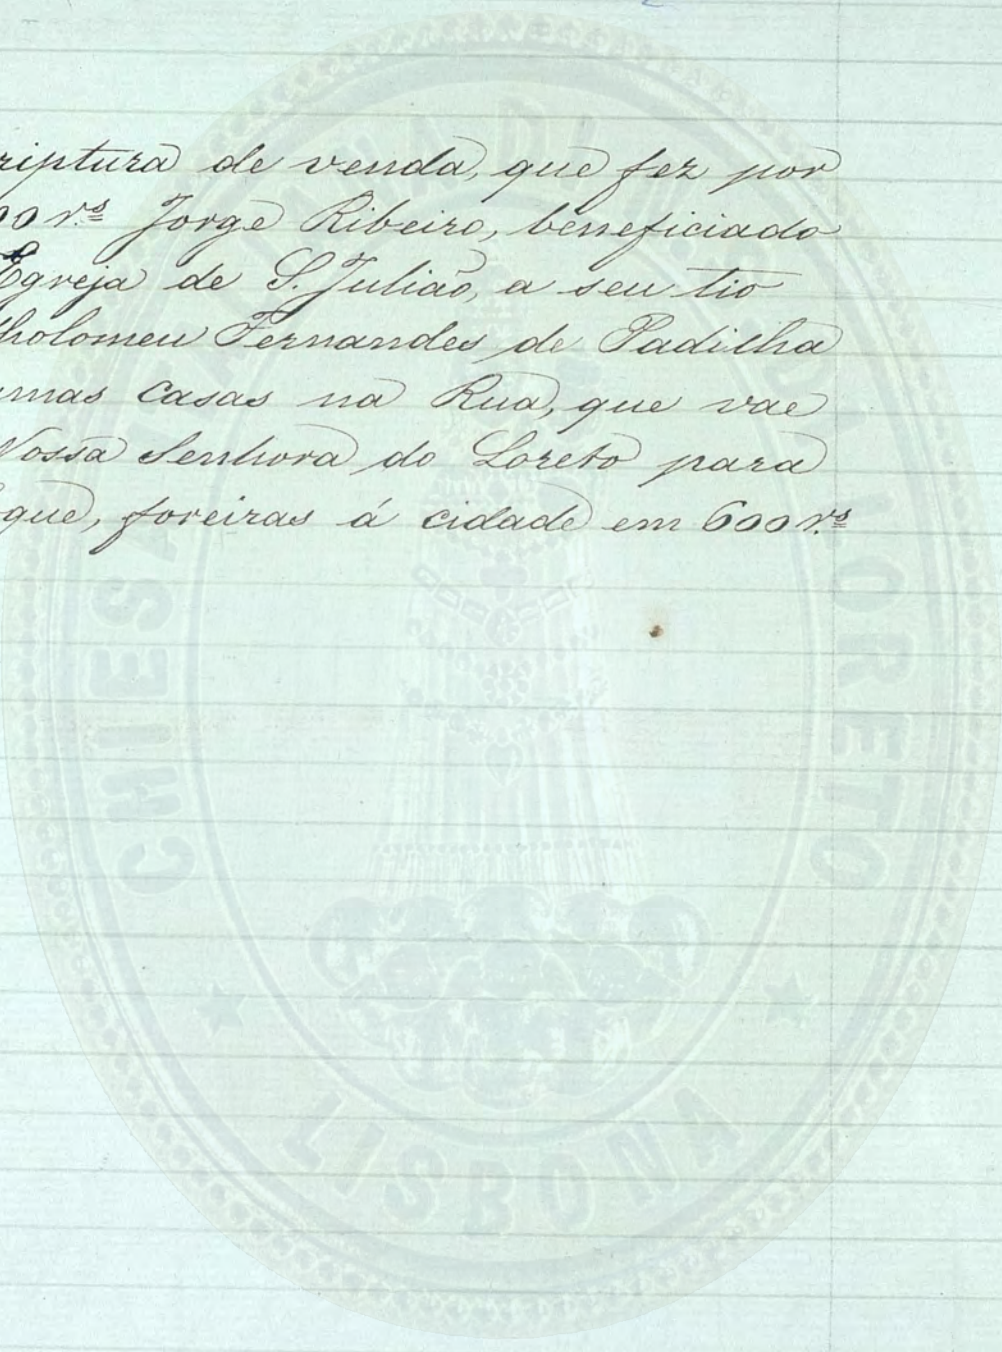 riptura de venda, que fez por
00 r.s Jorge Ribeiro, beneficiado
Egreja de S. Julião, a seu tio
tholomeu Fernandes de Padilha
umas casas na Rua, que vae
Nossa Senhora do Loreto para
que, foreiras á cidade em 600 r.s
CHIESA DI LORETO
LISBONA